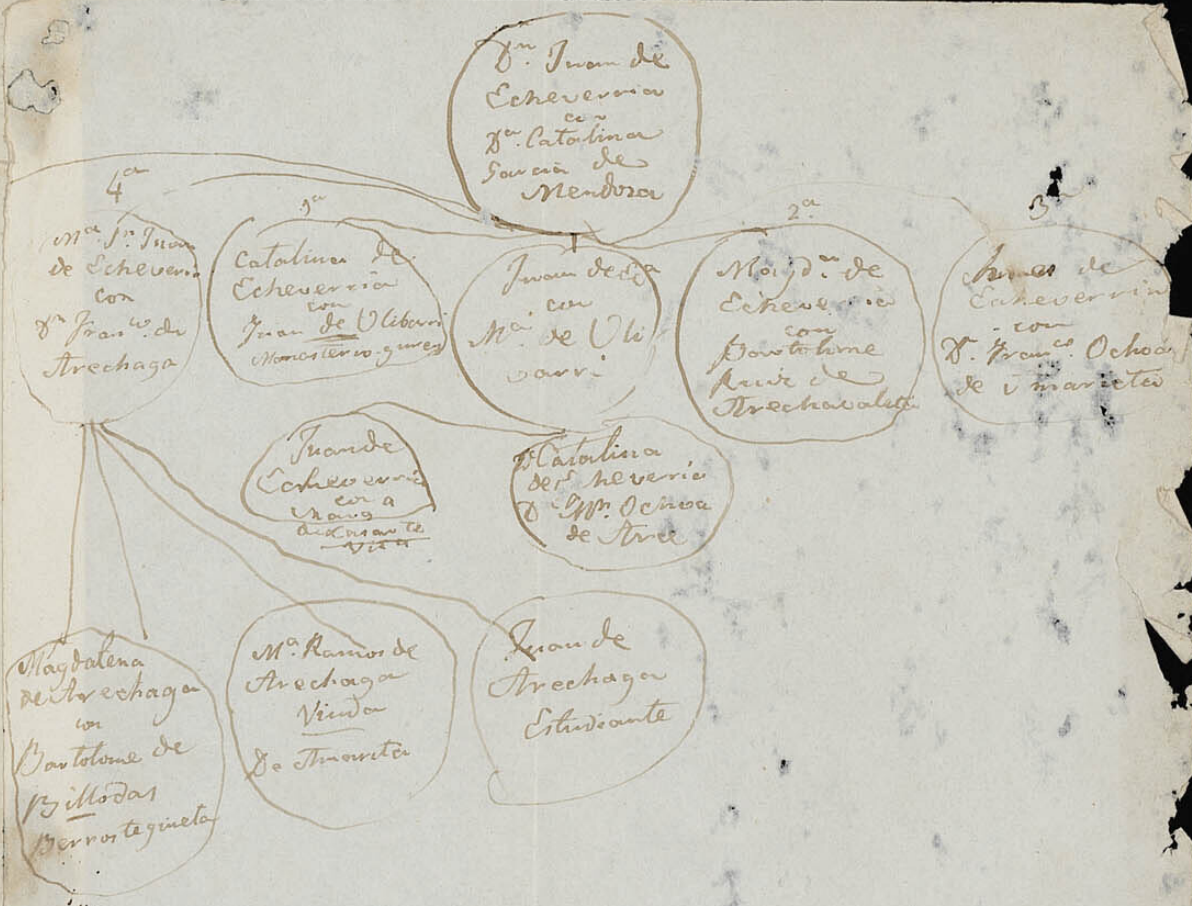 Dn. Juan de
Echeverria
con
Da. Catalina
Garcia de
Mendoza
4a
Ma. Jn. Juan
de Echeverria
con
Dn Franco. de
Arechaga
1a
Catalina de
Echeverria
con
Juan de Ulibarri
Monasterio guren
Juan de Ega
con
Ma. de Uli
varri
2a.
Magdna de
Echeverria
con
Bartolme
Ruiz de
Arechavaleta
3a
de
Echeverria
con
Dn. Franco. Ochoa
de Umarieta
Juan de
Echeverria
con
Da Catalina
de Echeverria
Dn Ochoa
de Arce
Magdalena
de Arechaga
con
Bartolome de
Billodas
Berrosteguieta
Ma. Ramos de
Arechaga
Viuda
De Amarita
Juan de
Arechaga
Estudiante